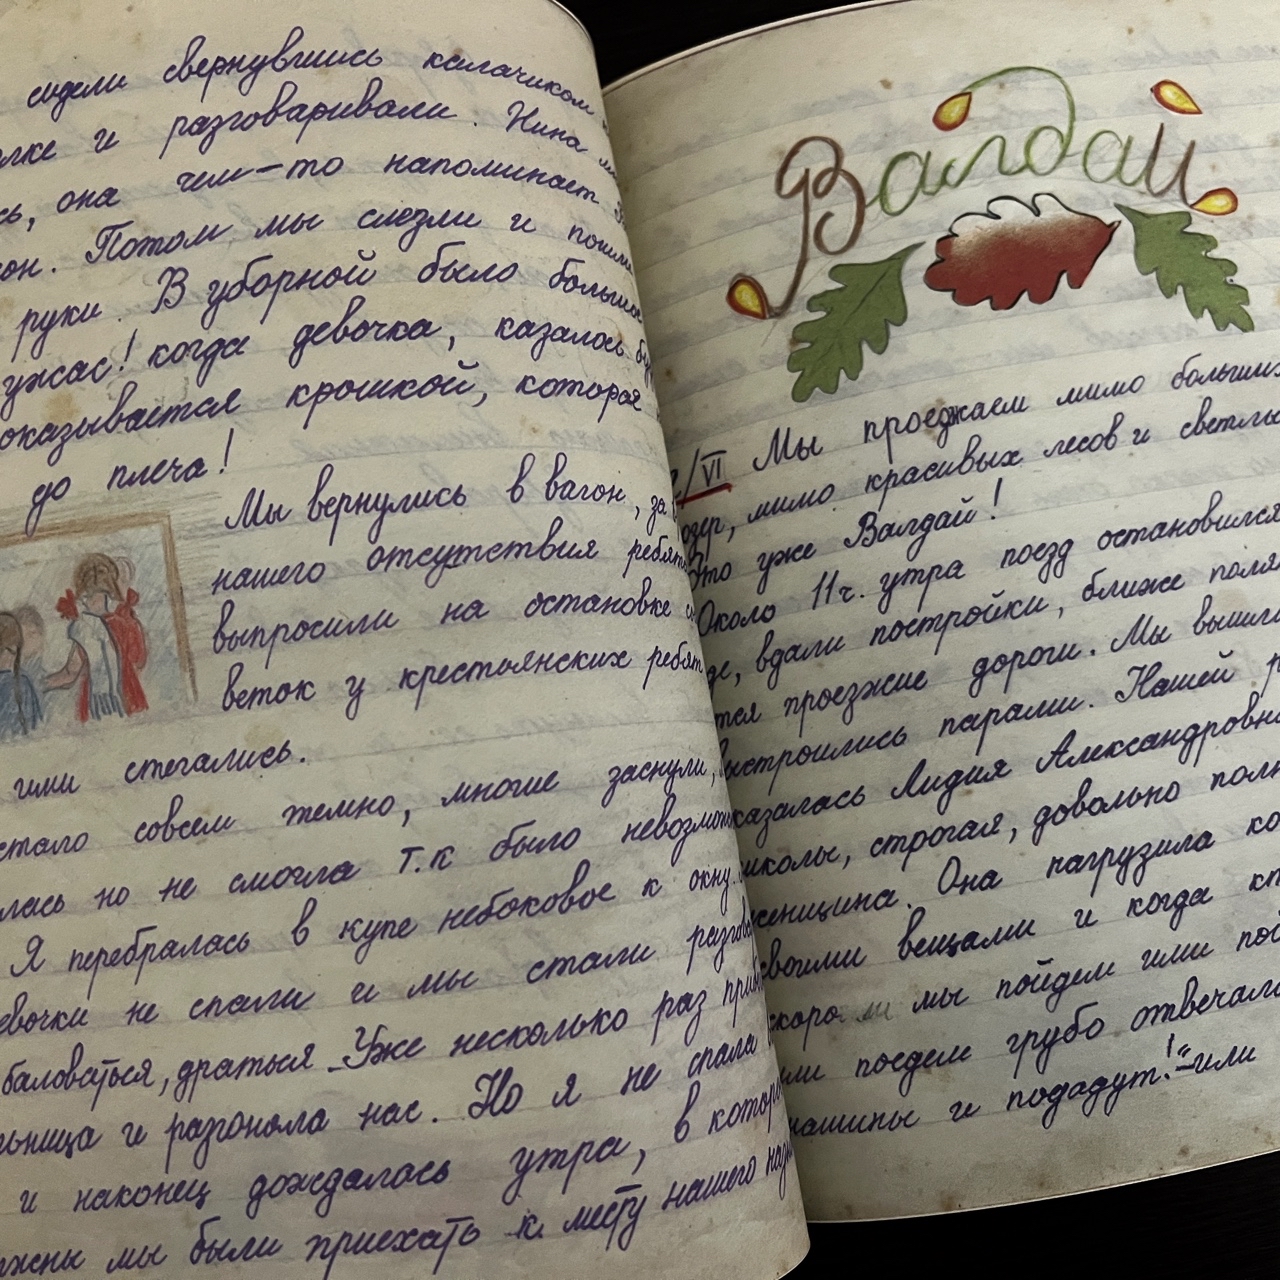 сидели свернувшись калачиком
и разговаривали. Нина
она чем-то напоминает
Потом мы слезли и пошли
руки. В уборной было большое
ужас! когда девочка, казалось
оказывается крошкой, которая
до плеча!
Мы вернулись в вагон, за
нашего отсутствия ребята
выпросили на остановке
веток у крестьянских ребят
ими стегались.
стало совсем темно, многие заснули,
но не смогла т.к было невозмож
Я перебралась в купе небоковое к окну.
не спали и мы стали разгов
баловаться, драться. Уже несколько раз
и разгоняла нас. Но я не спала
и наконец дождалась утра, в котор
мы были приехать к месту нашего
Валдай
/VI Мы проезжаем мимо больших
озер, мимо красивых лесов и светлы
Это уже Валдай!
Около 11ч. утра поезд остановился
вдали постройки, ближе поля
проезжие дороги. Мы вышли
выстроились парами. Нашей
казалась Лидия Александровна
школы, строгая, довольно полн
женщина. Она нагрузила
своими вещами и когда
скоро ли мы пойдем или
или поедем грубо отвечала
машины и подадут!" или